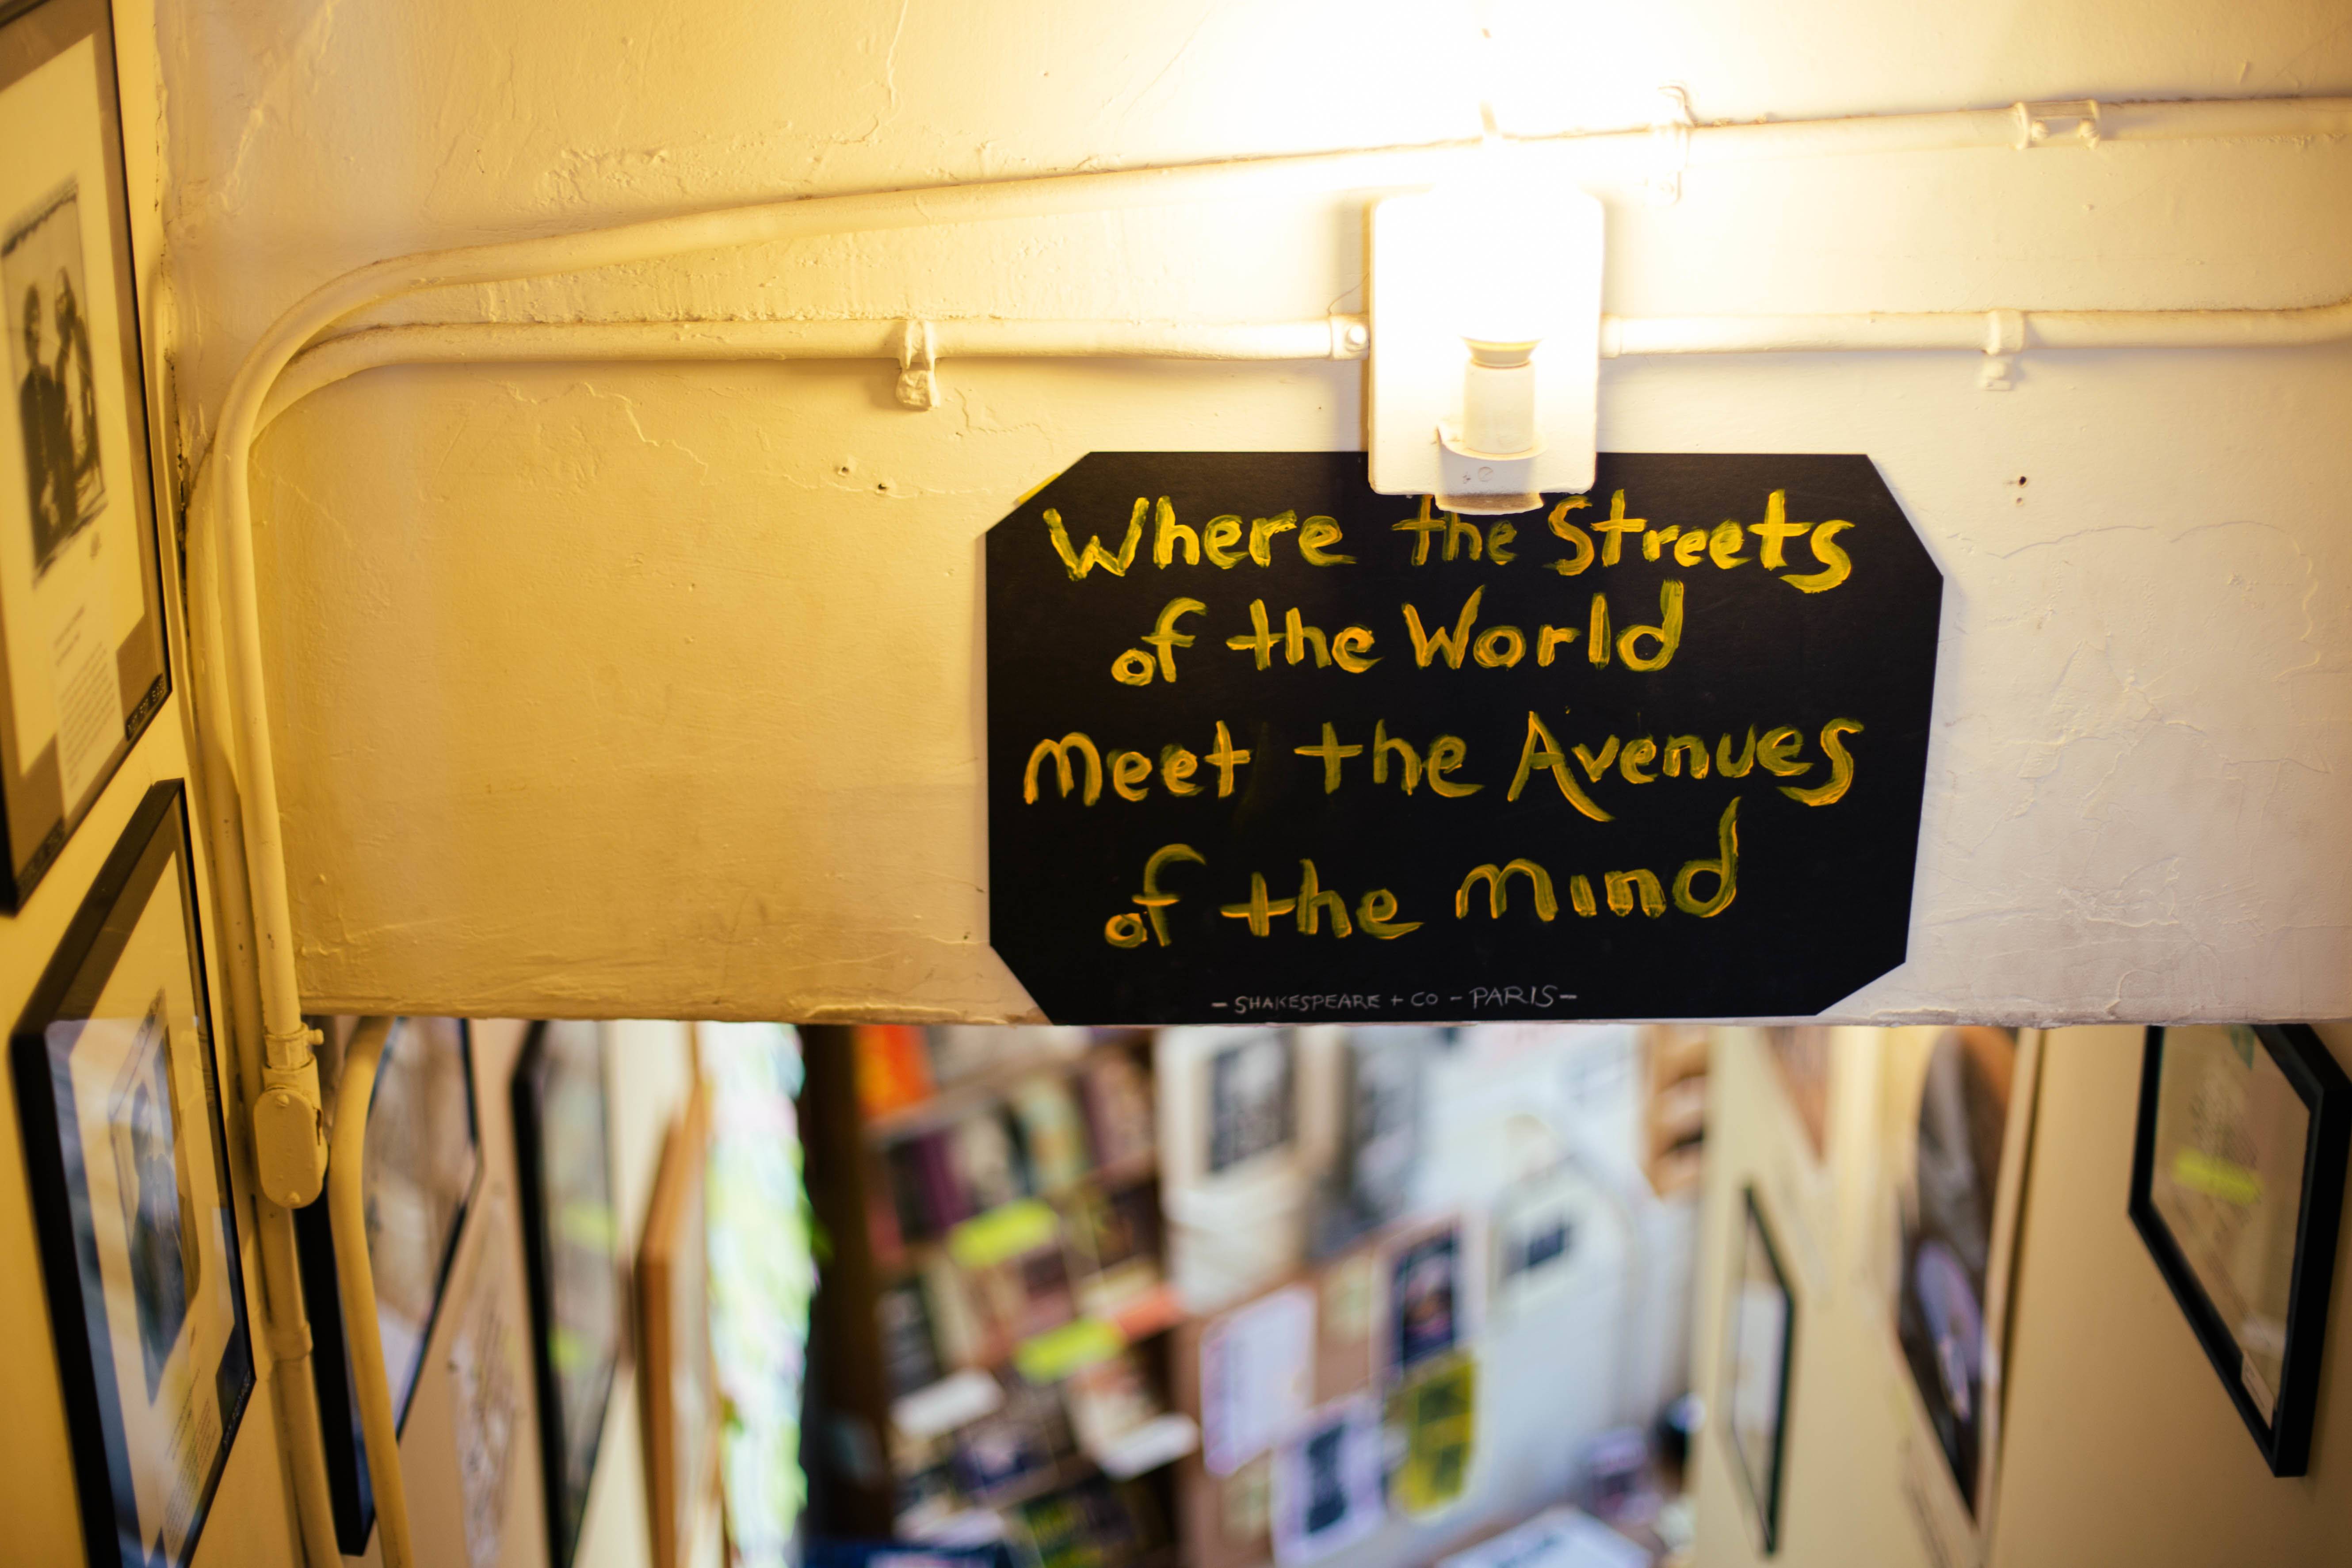 Where the Streets
of the World
meet the Avenues
of the mind
- SHAKESPEARE + CO - PARIS -